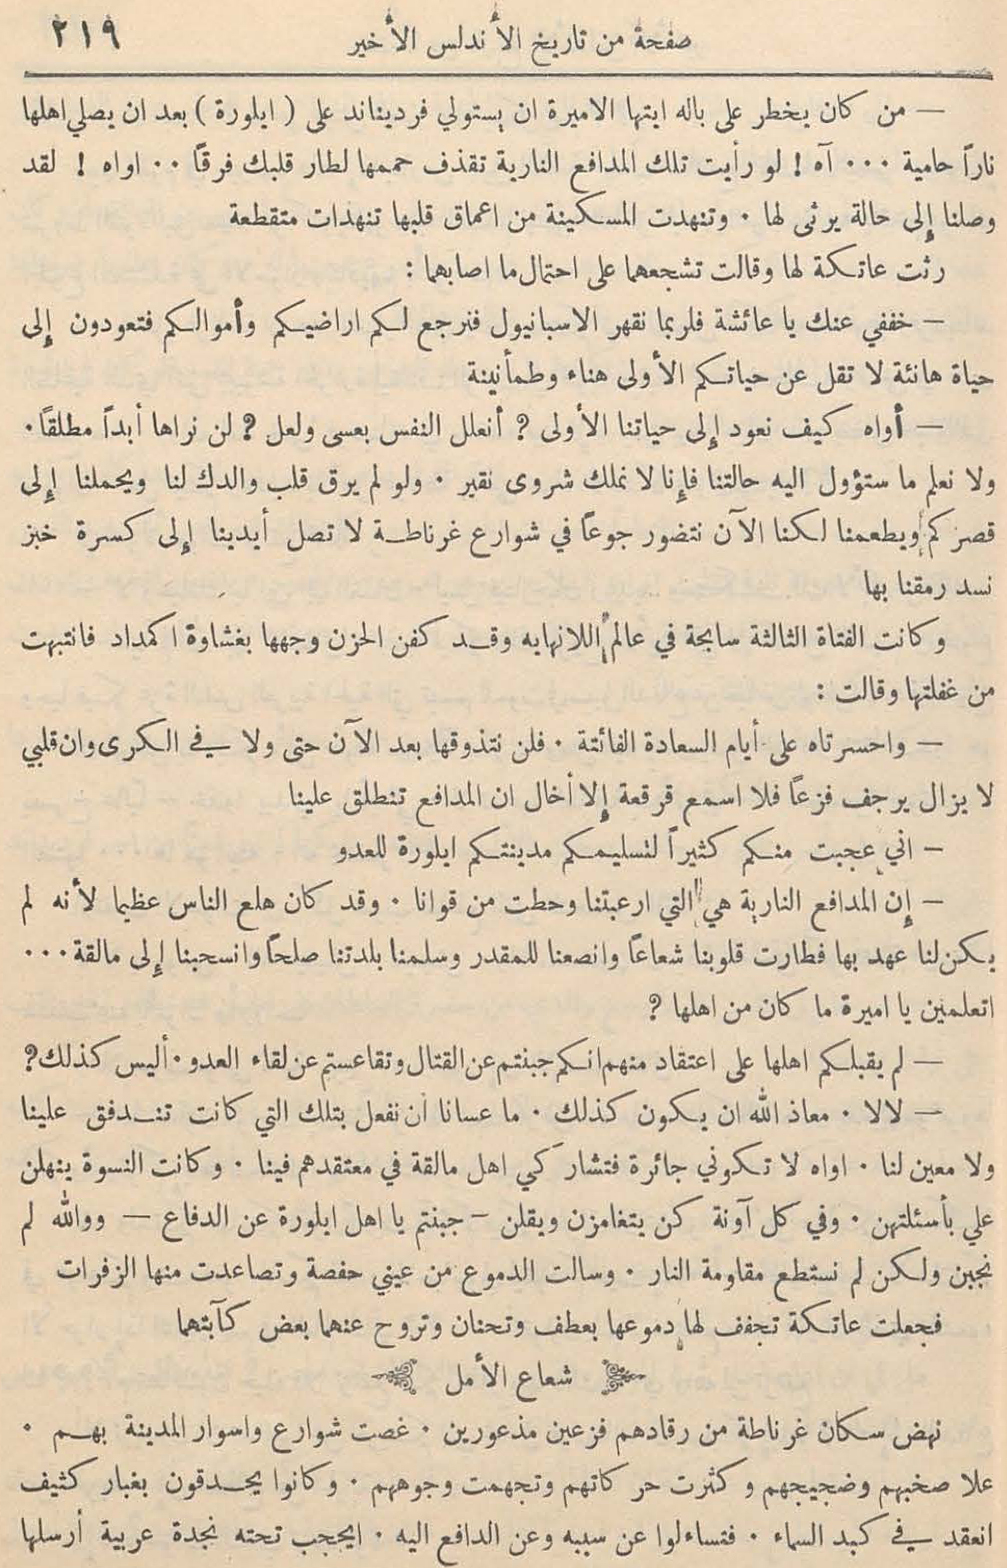 صفحة من تاريخ الأندلس الأخير ٢١٩
— من كان يخطر على باله ايتها الاميرة ان يستولي فرديناند على ( ايلورة ) بعد ان يصلي اهلها
ناراً حامية ٠٠٠ آه ! لو رأيت تلك المدافع النارية تقذف حممها لطار قلبك فرقاً ٠٠ اواه ! لقد
وصلنا إلى حالة يرثى لها ٠ وتنهدت المسكينة من اعماق قلبها تنهدات متقطعة
رثت عاتكة لها وقالت تشجعهما على احتمال ما اصابهما :
— خففي عنك يا عائشة فلربما نقهر الاسبانيول فنرجع لكم اراضيكم وأموالكم فتعودون إلى
حياة هانئة لا تقل عن حياتكم الأولى هناء وطمأنينة
— أواه كيف نعود إلى حياتنا الأولى ? أنعلل النفس بعسى ولعل ? لن نراها أبداً مطلقاً.
ولا نعلم ما ستؤول اليه حالتنا فإنا لا نملك شروى نقير ٠ ولو لم يرق قلب والدك لنا ويحملنا إلى
قصركم ويطعمنا لكنا الآن نتضور جوعاً في شوارع غرناطة لا تصل أيدينا إلى كسرة خبز
نسد رمقنا بها
وكانت الفتاة الثالثة سابحة في عالم اللانهايه وقد كفن الحزن وجهها بغشاوة اكمداد فانتبهت
من غفلتها وقالت :
— واحسرتاه على أيام السعادة الفائتة ٠ فلن نتذوقها بعد الآن حتى ولا في الكرى وان قلبي
لا يزال يرجف فزعاً فلا اسمع قرقعة إلا أخال ان المدافع تنطلق علينا
— اني عجبت منكم كثيراً لتسليمكم مدينتكم ايلورة للعدو
— إن المدافع النارية هي التي ارعبتنا وحطت من قوانا ٠ وقد كان هلع الناس عظيما لأنه لم
يكن لنا عهد بها فطارت قلوبنا شعاعاً وانصعنا للمقدر وسلمنا بلدتنا صلحاً وانسحبنا إلى مالقة ٠٠٠
اتعلمين يا اميرة ما كان من اهلها ?
— لم يقبلكم اهلها على اعتقاد منهم انكم جبنتم عن القتال وتقاعستم عن لقاء العدو ٠ أليس كذلك ?
— لالا ٠ معاذ الله ان يكون كذلك ٠ ما عسانا أن نفعل بتلك التي كانت تندفق علينا
ولا معين لنا ٠ اواه لا تكوني جائرة فتشاركي اهل مالقة في معتقدهم فينا ٠ وكانت النسوة ينهلن
علي بأسئلتهن ٠ وفي كل آونة كن يتغامزن ويقلن – جبنتم يا اهل ايلورة عن الدفاع — ووالله لم
نجبن ولكن لم نستطع مقاومة النار ٠ وسالت الدموع من عيني حفصة وتصاعدت منها الزفرات
فجعلت عاتكة تجفف لها دموعها بعطف وتحنان وتروح عنهما بعض كآبتهما
شعاع الأمل
نهض سكان غرناطة من رقادهم فزعين مذعورين ٠ غصت شوارع واسوار المدينة بهم ٠
علا صخبهم وضجيجهم وكثرت حركاتهم وتجهمت وجوههم ٠ وكانوا يحدقون بغبار كثيف
انعقد في كبد السماء ٠ فتساءلوا عن سببه وعن الدافع اليه ٠ ايحجب تحته نجدة عربية أرسلها